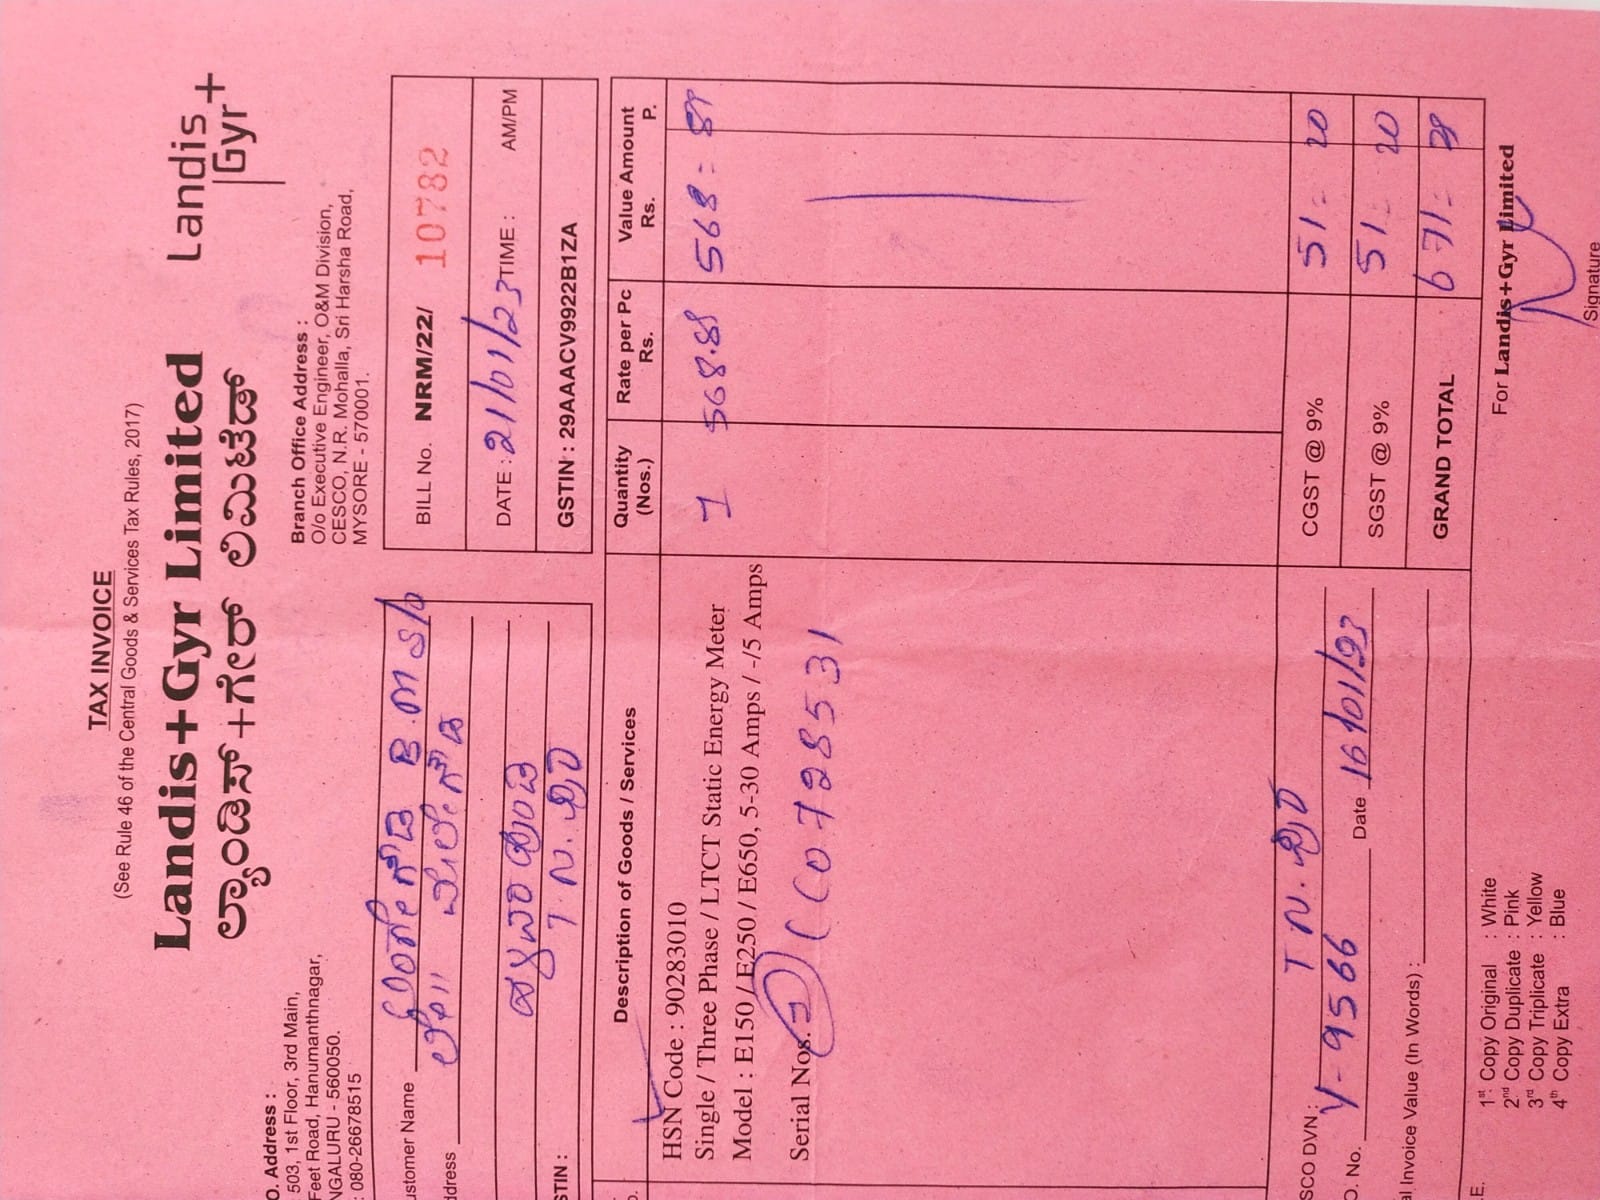 TAX INVOICE
(See Rule 46 of the Central Goods & Services Tax Rules, 2017)
Landis+Gyr Limited
ಲ್ಯಾಂಡಿಸ್+ಗೇರ್ ಲಿಮಿಟೆಡ್
Landis
Gyr+
O. Address :
503, 1st Floor, 3rd Main,
Feet Road, Hanumanthnagar,
NGALURU - 560050.
: 080-26678515
Branch Office Address :
O/o Executive Engineer, O&M Division,
CESCO, N.R. Mohalla, Sri Harsha Road,
MYSORE - 570001.
ustomer Name
ddress
STIN :
BILL No. NRM/22/ 10782
DATE : 21/01/23 TIME : AM/PM
GSTIN : 29AAACV9922B1ZA
o. Description of Goods / Services Quantity (Nos.) Rate per Pc Rs. Value Amount Rs. P.
HSN Code : 90283010 1 568.88 568=88
Single / Three Phase / LTCT Static Energy Meter
Model : E150 / E250 / E650, 5-30 Amps / -/5 Amps
Serial Nos.
C0728531
SCO DVN: CGST @ 9% 51= 20
O. No. Y-9566 Date 16/01/23 SGST @ 9% 51= 20
al Invoice Value (In Words) : GRAND TOTAL 671=
E. 1st Copy Original : White
2nd Copy Duplicate : Pink
3rd Copy Triplicate : Yellow
4th Copy Extra : Blue
For Landis+Gyr Limited
Signature